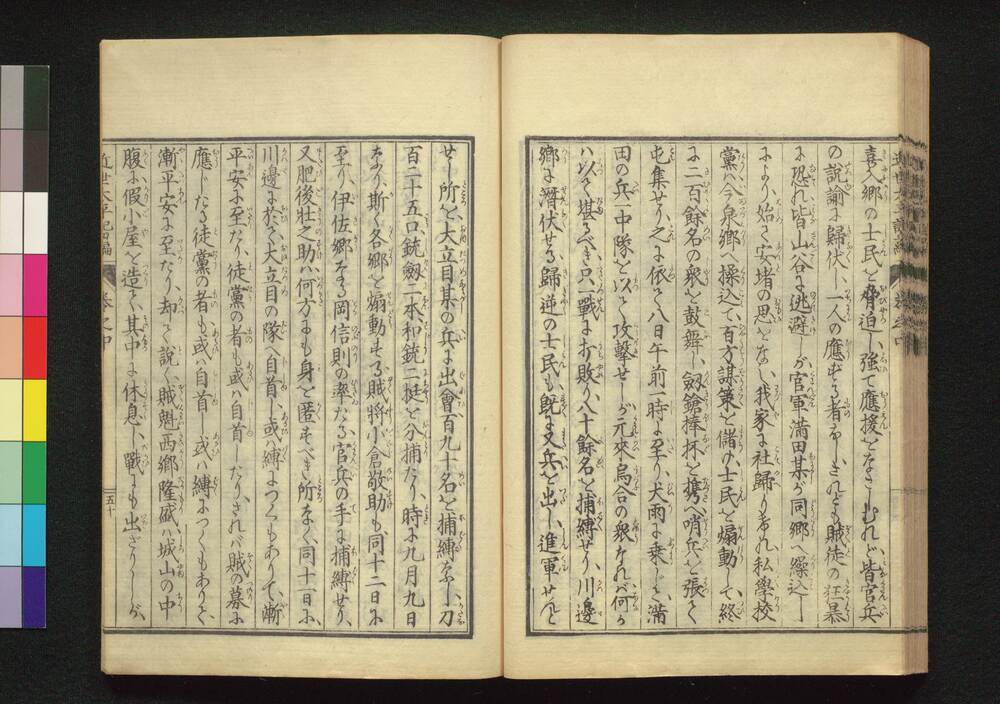 喜入郷の士民を脅迫し強て應援をなさしむれど皆官兵
の説諭に歸伏し一人の應ずる者なしされども賊徒の狂暴
に恐れ皆山谷に逃避しが官軍満田某が同郷へ繰込し
により始て安堵の思をなし我家にぞ歸りける私學校
黨ハ今泉郷へ操込て百方謀策を儲け士民を煽動して終
に二百餘名の衆を鼓舞し劔鎗棒抔を携へ哨兵を張て
屯集せり之に依て八日午前一時に至り大雨に乗じ満
田の兵一中隊を以て攻擊せしが元來烏合の衆なれバ何か
ハ以て堪るべき只一戰に打敗り八十餘名を捕縛せり川邊
郷に潛伏せる歸逆の士民も既に又兵を出し進軍せんと
せし所を大立目某の兵に出會百九十名を捕縛なし刀
百二十五口銃劔二本和銃二挺を分捕たり時に九月九日
なり斯て各郷を煽動する賊將小倉敬助も同十二日に
至り伊佐郷なる岡信則の率たる官兵の手に捕縛せり
又肥後壮之助ハ何方にも身を匿すべき所なく同十一日に
川邊に於て大立目の隊へ自首し或ハ縛につくもありて漸
平安に至たり徒黨の者も或ハ自首したりされバ賊の募に
應じたる徒黨の者も或ハ自首し或ハ縛につくもありて
漸平安に至たり却て説く賊魁西郷隆盛ハ城山の中
腹に假小屋を造て其中に休息し戰にも出ざりしが
近世太平記四編 卷之中 五十